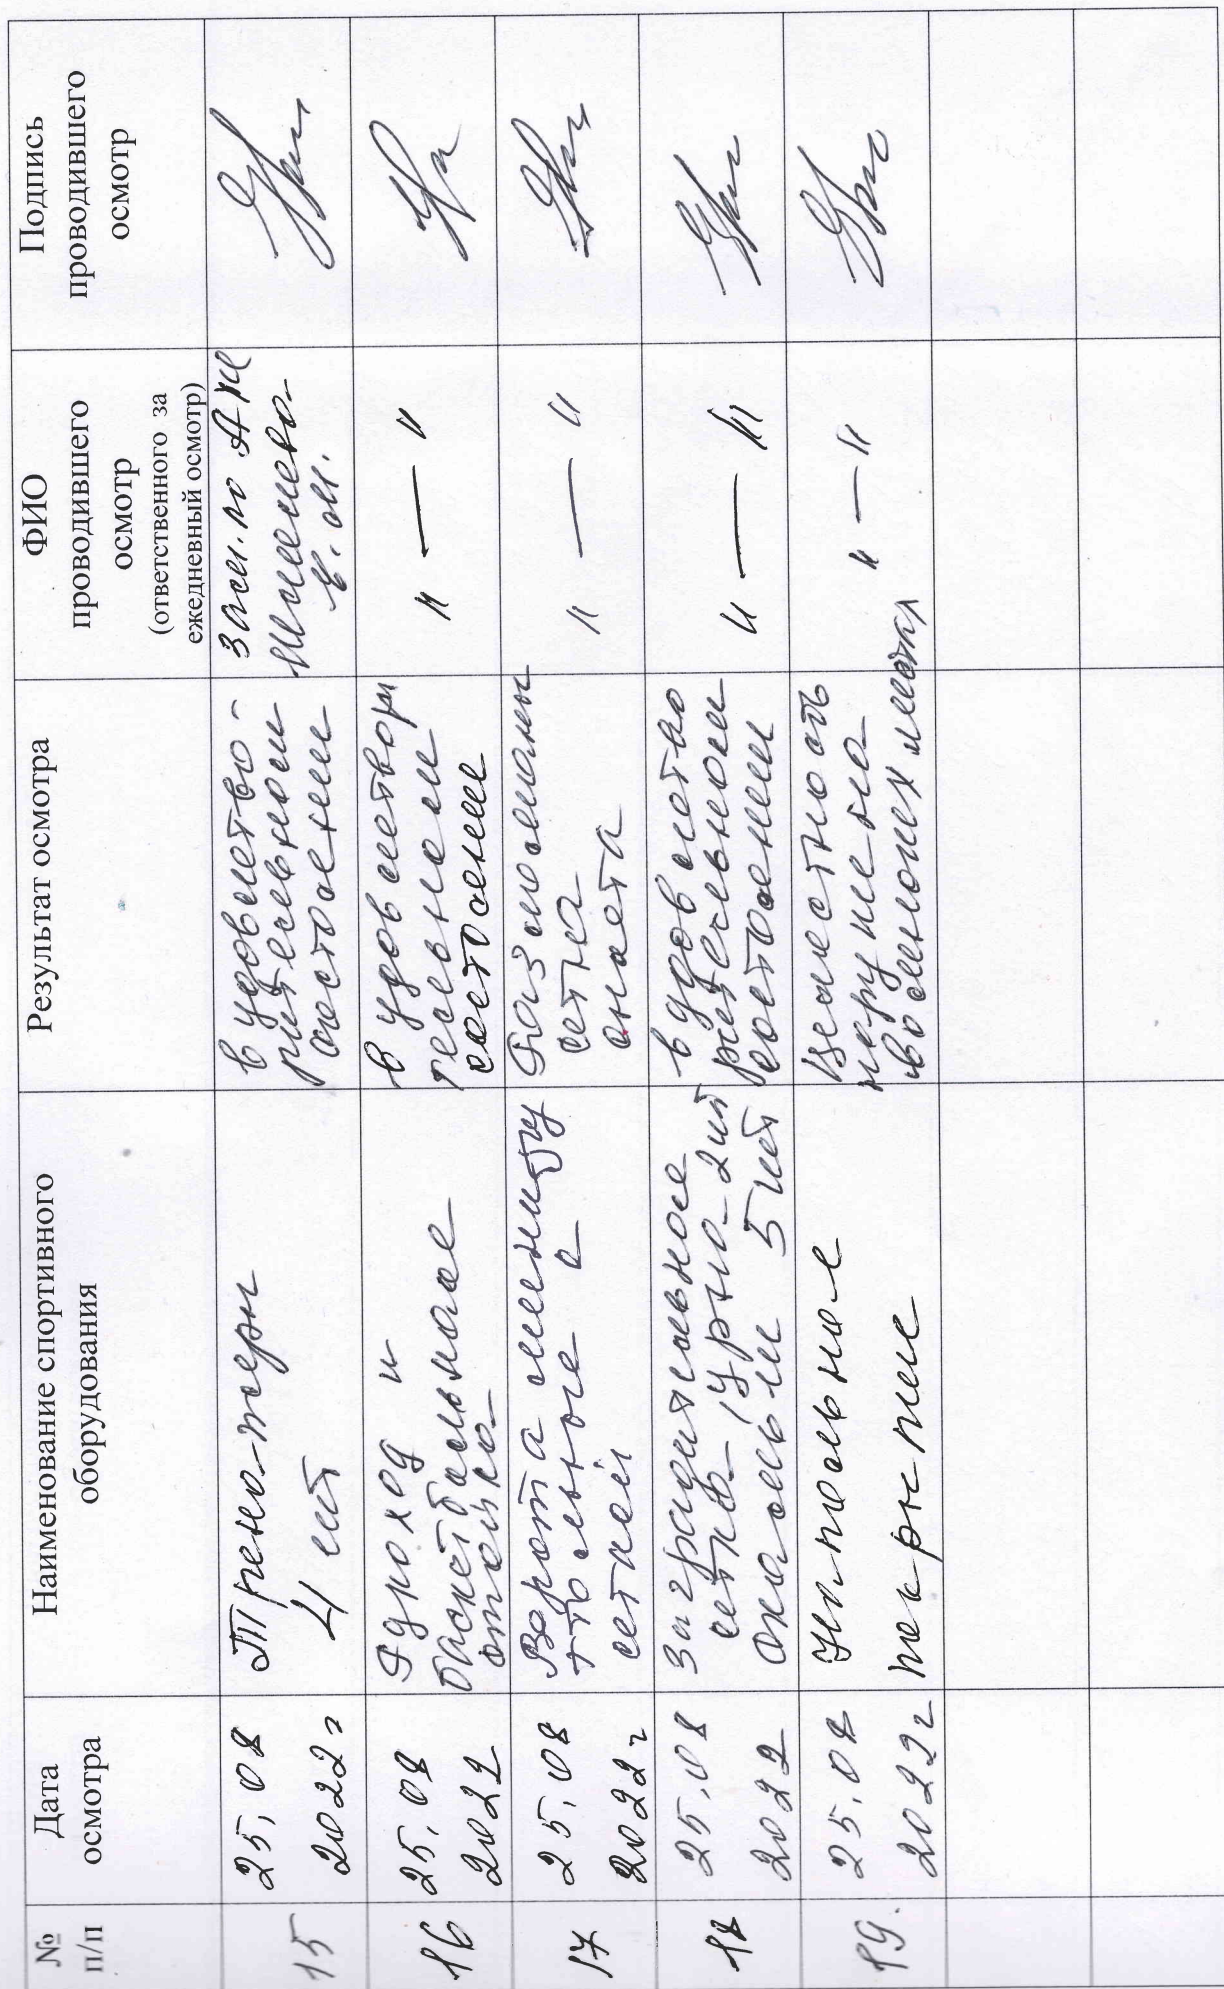 №
п/п
Дата
осмотра
Наименование спортивного
оборудования
Результат осмотра
ФИО
проводившего
осмотр
(ответственного за
ежедневный осмотр)
Подпись
проводившего
осмотр
15
25.08
2022г
Тренажеры
4 шт
в удовлетво-
рительном
состоянии
Зам. по АХЧ
Е. М.
16
25.08
2022
и
Баскетбольная
стойка
в удовлетвори
тельном
состоянии
" — "
17
25.08
2022г
Ворота минифу
тбольные с
сеткой
Разломаны
сетка
снята
" — "
18
25.08
2022
Заградительная
сетка, урна-2шт
скамьи 5 шт
в удовлетво
рительном
состоянии
" — "
19.
25.08
2022г
Напольное
покрытие
Целостность
нарушена
во многих местах
" — "